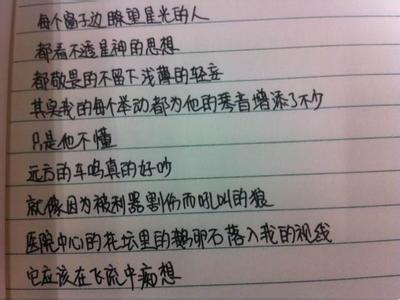 每个窗子边瞭望星光的人
都看不透星神的思想
都敬畏的不留下浅薄的轻妄
其实我的每个举动都为他的秀音增添了不少
只是他不懂
远方的车鸣真的好吵
就像因为被利器割伤而吼叫的狼
医院中心的花坛里的鹅卵石落入我的视线
它应该在飞流中痴想